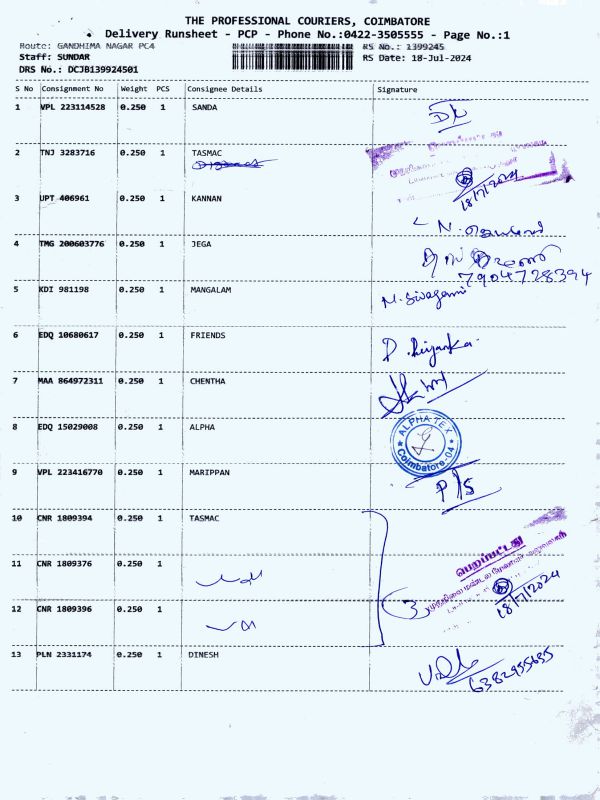 THE PROFESSIONAL COURIERS, COIMBATORE
Delivery Runsheet - PCP - Phone No.:0422-3505555 - Page No.:1
Route: GANDHIMA NAGAR PC4 RS No.: 1399245
Staff: SUNDAR RS Date: 18-Jul-2024
DRS No.: DCJB139924501
S No Consignment No Weight PCS Consignee Details Signature
1 VPL 223114528 0.250 1 SANDA
2 TNJ 3283716 0.250 1 TASMAC
18/7/2024
3 UPT 406961 0.250 1 KANNAN
4 TMG 200603776 0.250 1 JEGA
7904728394
5 KDI 981198 0.250 1 MANGALAM N. Sivagami
6 EDQ 10680617 0.250 1 FRIENDS D. Priyanka
7 MAA 864972311 0.250 1 CHENTHA
8 EDQ 15029008 0.250 1 ALPHA ALPHA TEX Coimbatore-04
9 VPL 223416770 0.250 1 MARIPPAN
10 CNR 1809394 0.250 1 TASMAC
11 CNR 1809376 0.250 1
பெறப்பட்டது
12 CNR 1809396 0.250 1 3 18/7/2024
13 PLN 2331174 0.250 1 DINESH
6382955635